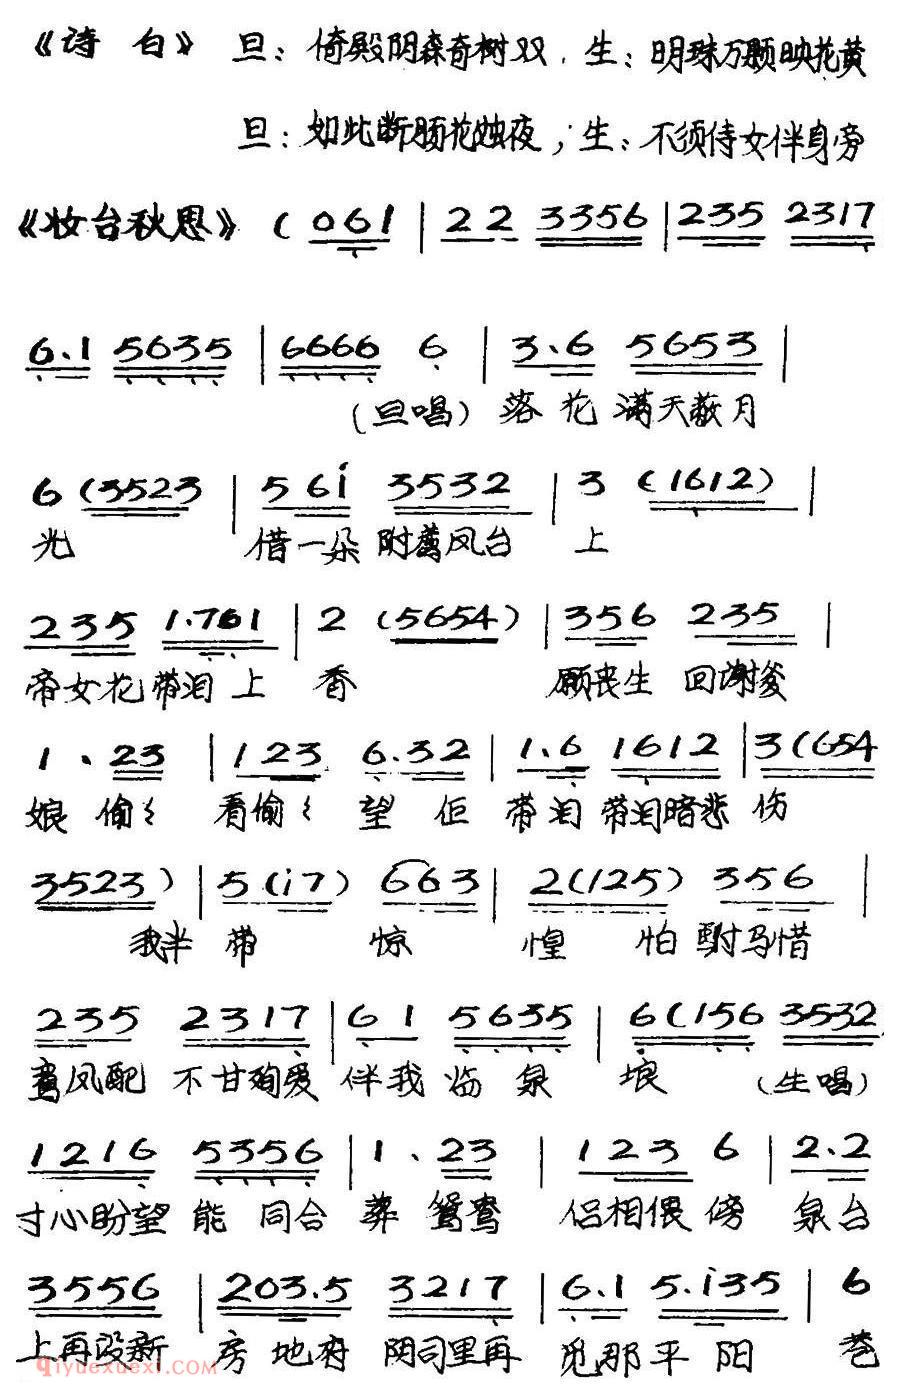 《诗 白》 旦：倚殿阴森奇树双．生：明珠万颗映花黄
旦：如此断肠花烛夜，生：不须侍女伴身旁
《妆台秋思》 ( 061 | 22 3356 | 235 2317
6.1 5635 | 6666 6 | 3.6 5653 |
(旦唱) 落 花 满天蔽月
6 (3523 | 5 6i 3532 | 3 (1612) |
光 借一朵 附薦凤台 上
235 1.761 | 2 (5654) | 356 235 |
帝女花 带泪 上 香 愿丧生 回谢爹
1 . 23 | 123 6.32 | 1.6 1612 | 3(654
娘 偷〻 看偷〻 望 佢 带 泪 带泪暗悲 伤
3523) | 5(i7) 663 | 2(125) 356 |
我半 带 惊 惶 怕 駙马惜
235 2317 | 61 5635 | 6(156 3532
鸾凤配 不甘殉爱 伴我 临 泉 壌 (生唱)
1216 5356 | 1 . 23 | 123 6 | 2.2
寸心盼望 能 同合 葬 鸳鸯 侣相偎 傍 泉台
3556 | 203.5 3217 | 6.1 5.i35 | 6
上再设新 房 地府 阴司里再 觅那 平 阳 巷
Qiyuexuexi.com